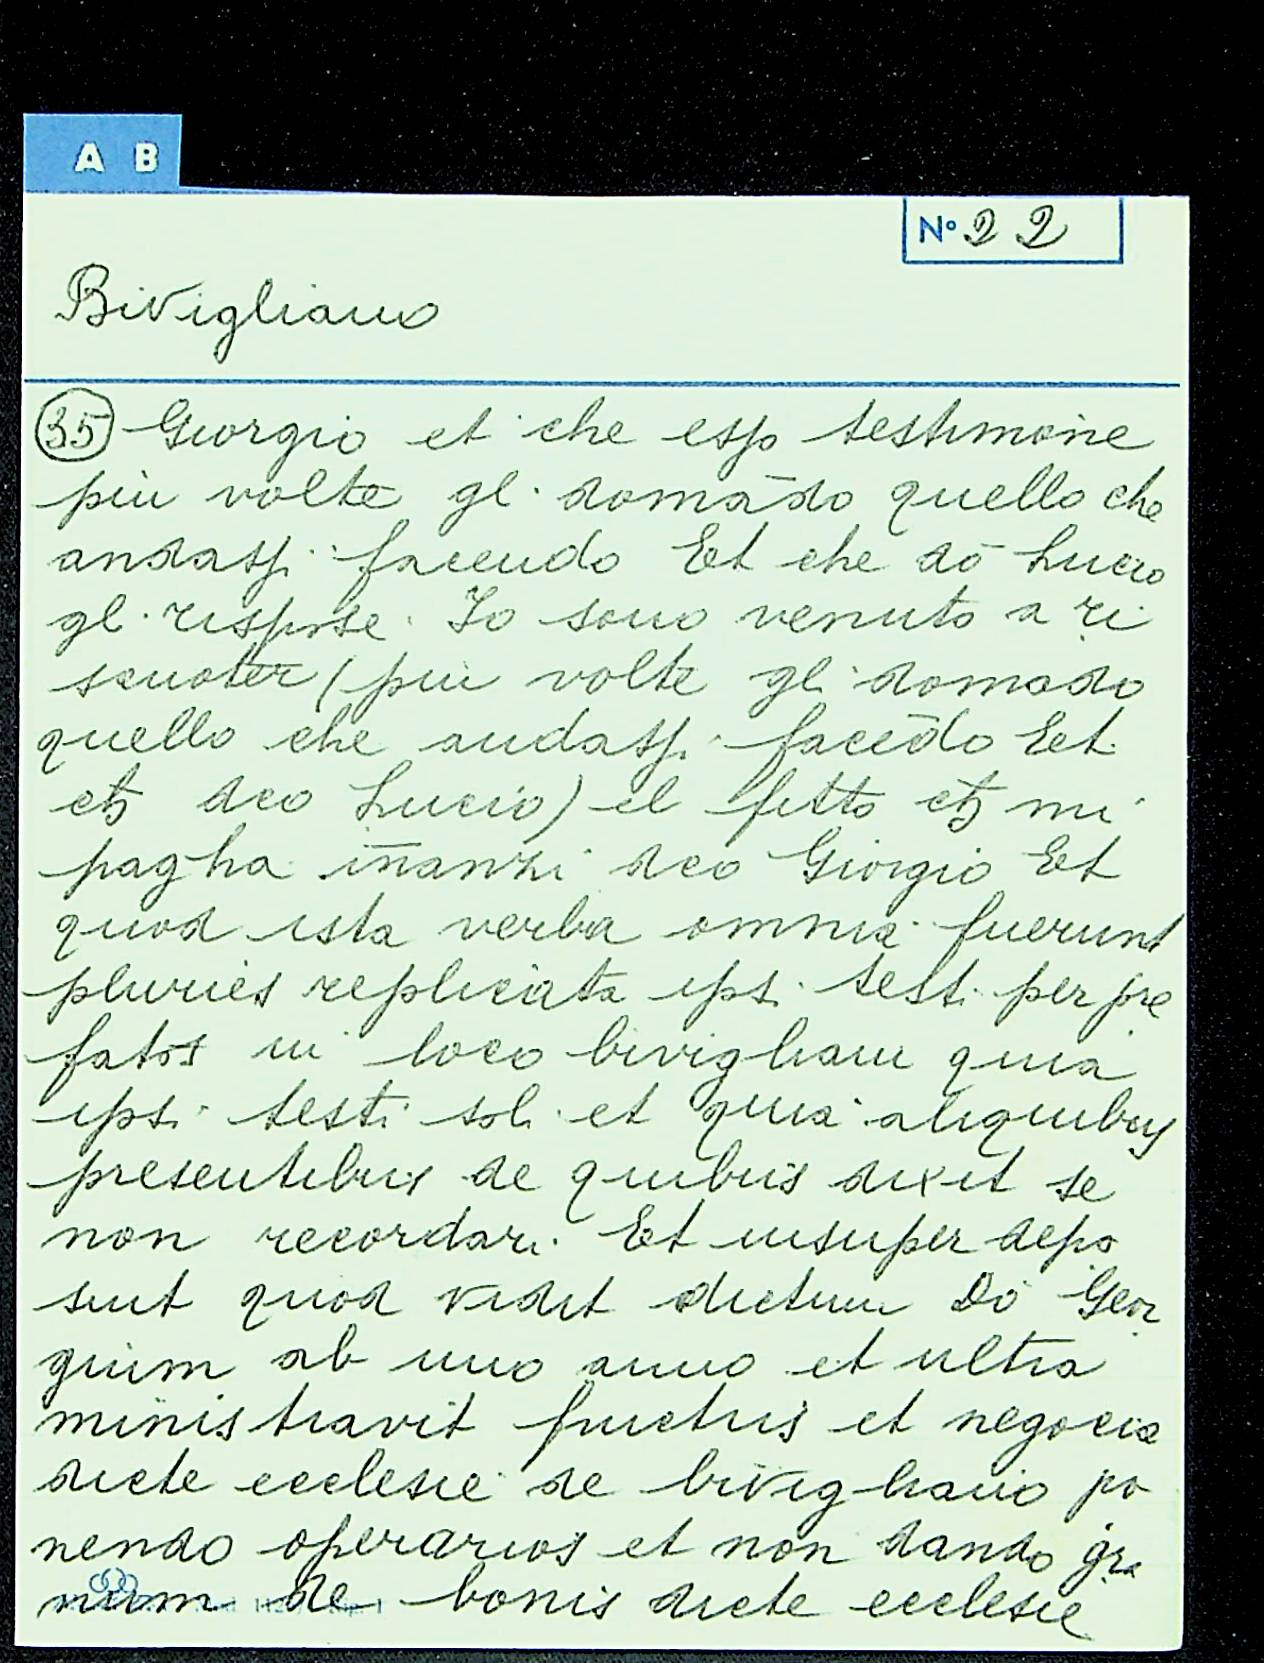 A B
N° 22
Bivigliano
35 Giorgio et che esso testimone
più volte gl. domādo quello che
andassi facendo Et che dō Lucio
gl. rispose. Io sono venuto a ri
scuoter (più volte gli domādo
quello che andassi facēdo Et
ch dco Lucio) el fitto ch mi
pagha iñanzi dco Giorgio Et
quod ista verba omnia fuerunt
pluries replicata ips. test. per pre
fatos in loco bivigliani quia
ipsi testi soli et quia aliquibus
presentibus de quibus dixit se
non recordari. Et insuper depo
suit quod vidit dictum Dō Geor
gium ab uno anno et ultra
ministravit fructus et negocia
dicte ecclesie de bivigliano po
nendo operarios et non dando gra
num de bonis dicte ecclesie